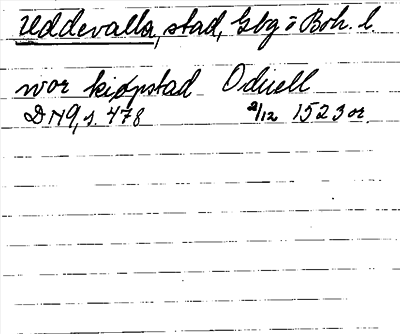 Uddevalla, stad, Gbg o Boh. l.
wor kiøpstad Oduell
DN9, s. 478 2/12 1523 or.